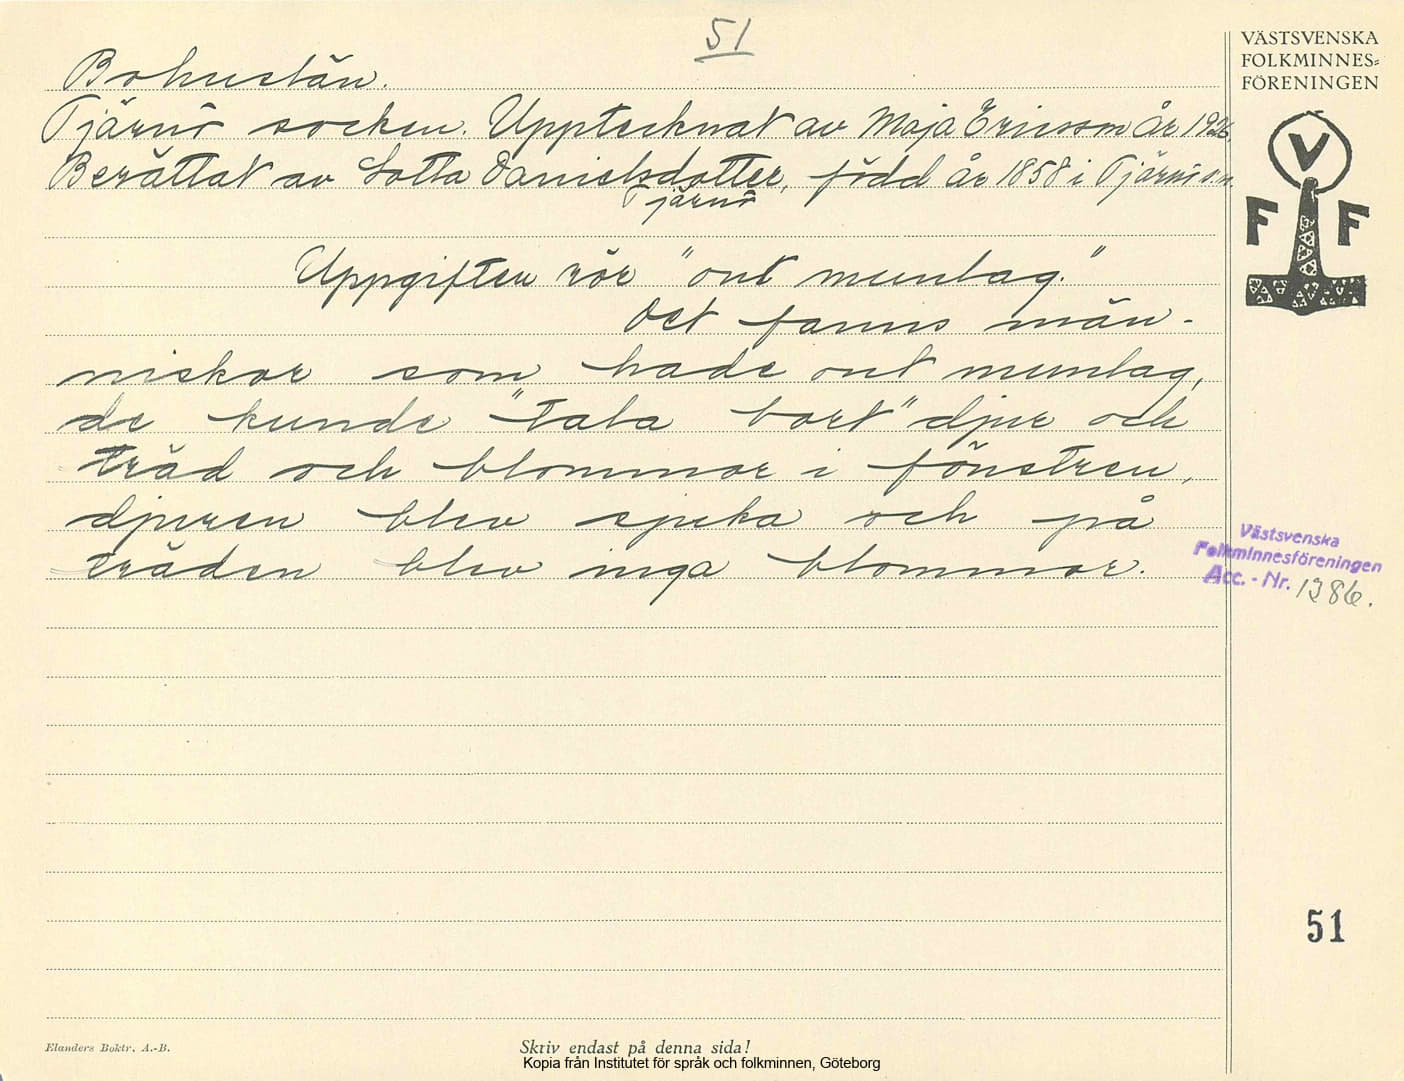 51
VÄSTSVENSKA
FOLKMINNES=
FÖRENINGEN
V
F F
Bohuslän.
Tjärnö socken. Upptecknat av Maja Ericsson år 1926.
Berättat av Lotta Danielsdotter, född år 1858 i Tjärnö s:n.
Tjärnö
Uppgiften rör "ont munlag."
Det fanns män-
niskor som hade ont munlag,
de kunde "tala bort" djur och
träd och blommor i fönstren,
djuren blev sjuka och på
träden blev inga blommor.
Västsvenska
Folkminnesföreningen
Acc. - Nr. 1386.
51
Elanders Boktr. A.-B.
Skriv endast på denna sida!
Kopia från Institutet för språk och folkminnen, Göteborg